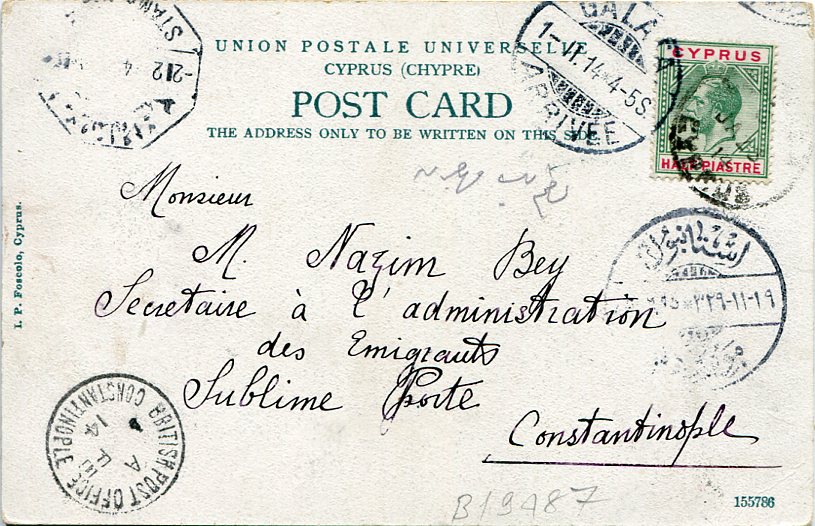 UNION POSTALE UNIVERSELLE
CYPRUS (CHYPRE)
POST CARD
THE ADDRESS ONLY TO BE WRITTEN ON THIS SIDE.
GALATA
1-VI.14★4-5S
ARRIVEE
CYPRUS
HALF PIASTRE
STAM
212
4
Monsieur
M. Nazim Bey
Secretaire à l'administration
des Emigrants
Sublime Porte
Constantinople
I. P. Foscolo, Cyprus.
BRITISH POST OFFICE
CONSTANTINOPLE
A
14
استانبول
B19487
155786